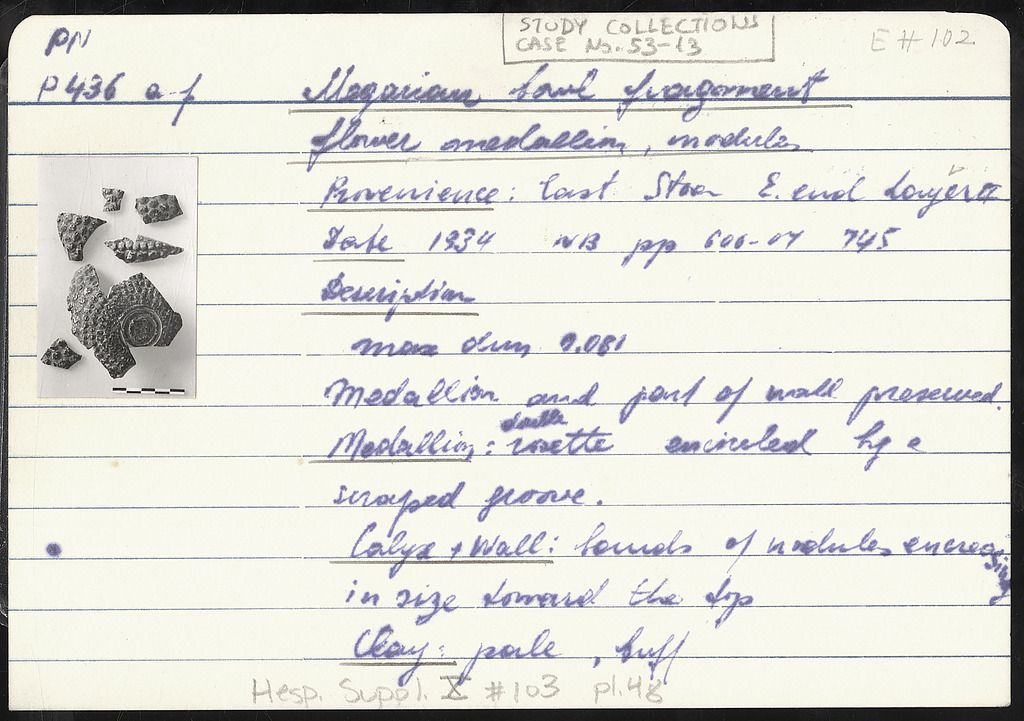 STUDY COLLECTIONS
CASE No. 53-13
E # 102
PN
P 436 a-f
Megarian bowl fragment
flower medallion, nodules
Provenience: East Stoa E. end Layer II
Date 1934 NB pp 606-07 745
Description
max dim 0.081
Medallion and part of wall preserved.
Medallion: double rosette encircled by a
scraped groove.
Calyx + Wall: bands of nodules encreasing
in size toward the top
Clay: pale, buff
Hesp. Suppl. X # 103 pl. 48